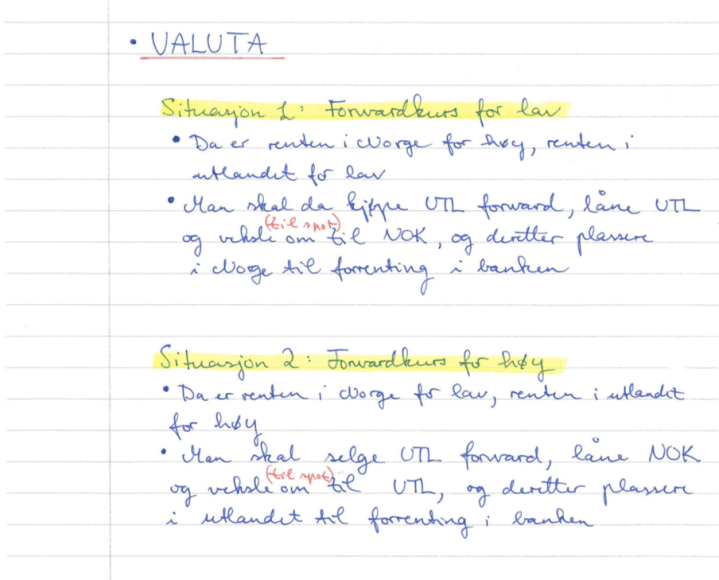 • VALUTA
Situasjon 1: Forwardkurs for lav
• Da er renten i Norge for høy, renten i
utlandet for lav
• Man skal da kjøpe UTL forward, låne UTL
og veksle om (til spot) til NOK, og deretter plassere
i Noge til forrenting i banken
Situasjon 2: Forwardkurs for høy
• Da er renten i Norge for lav, renten i utlandet
for høy
• Man skal selge UTL forward, låne NOK
og veksle om (til spot) til UTL, og deretter plassere
i utlandet til forrenting i banken